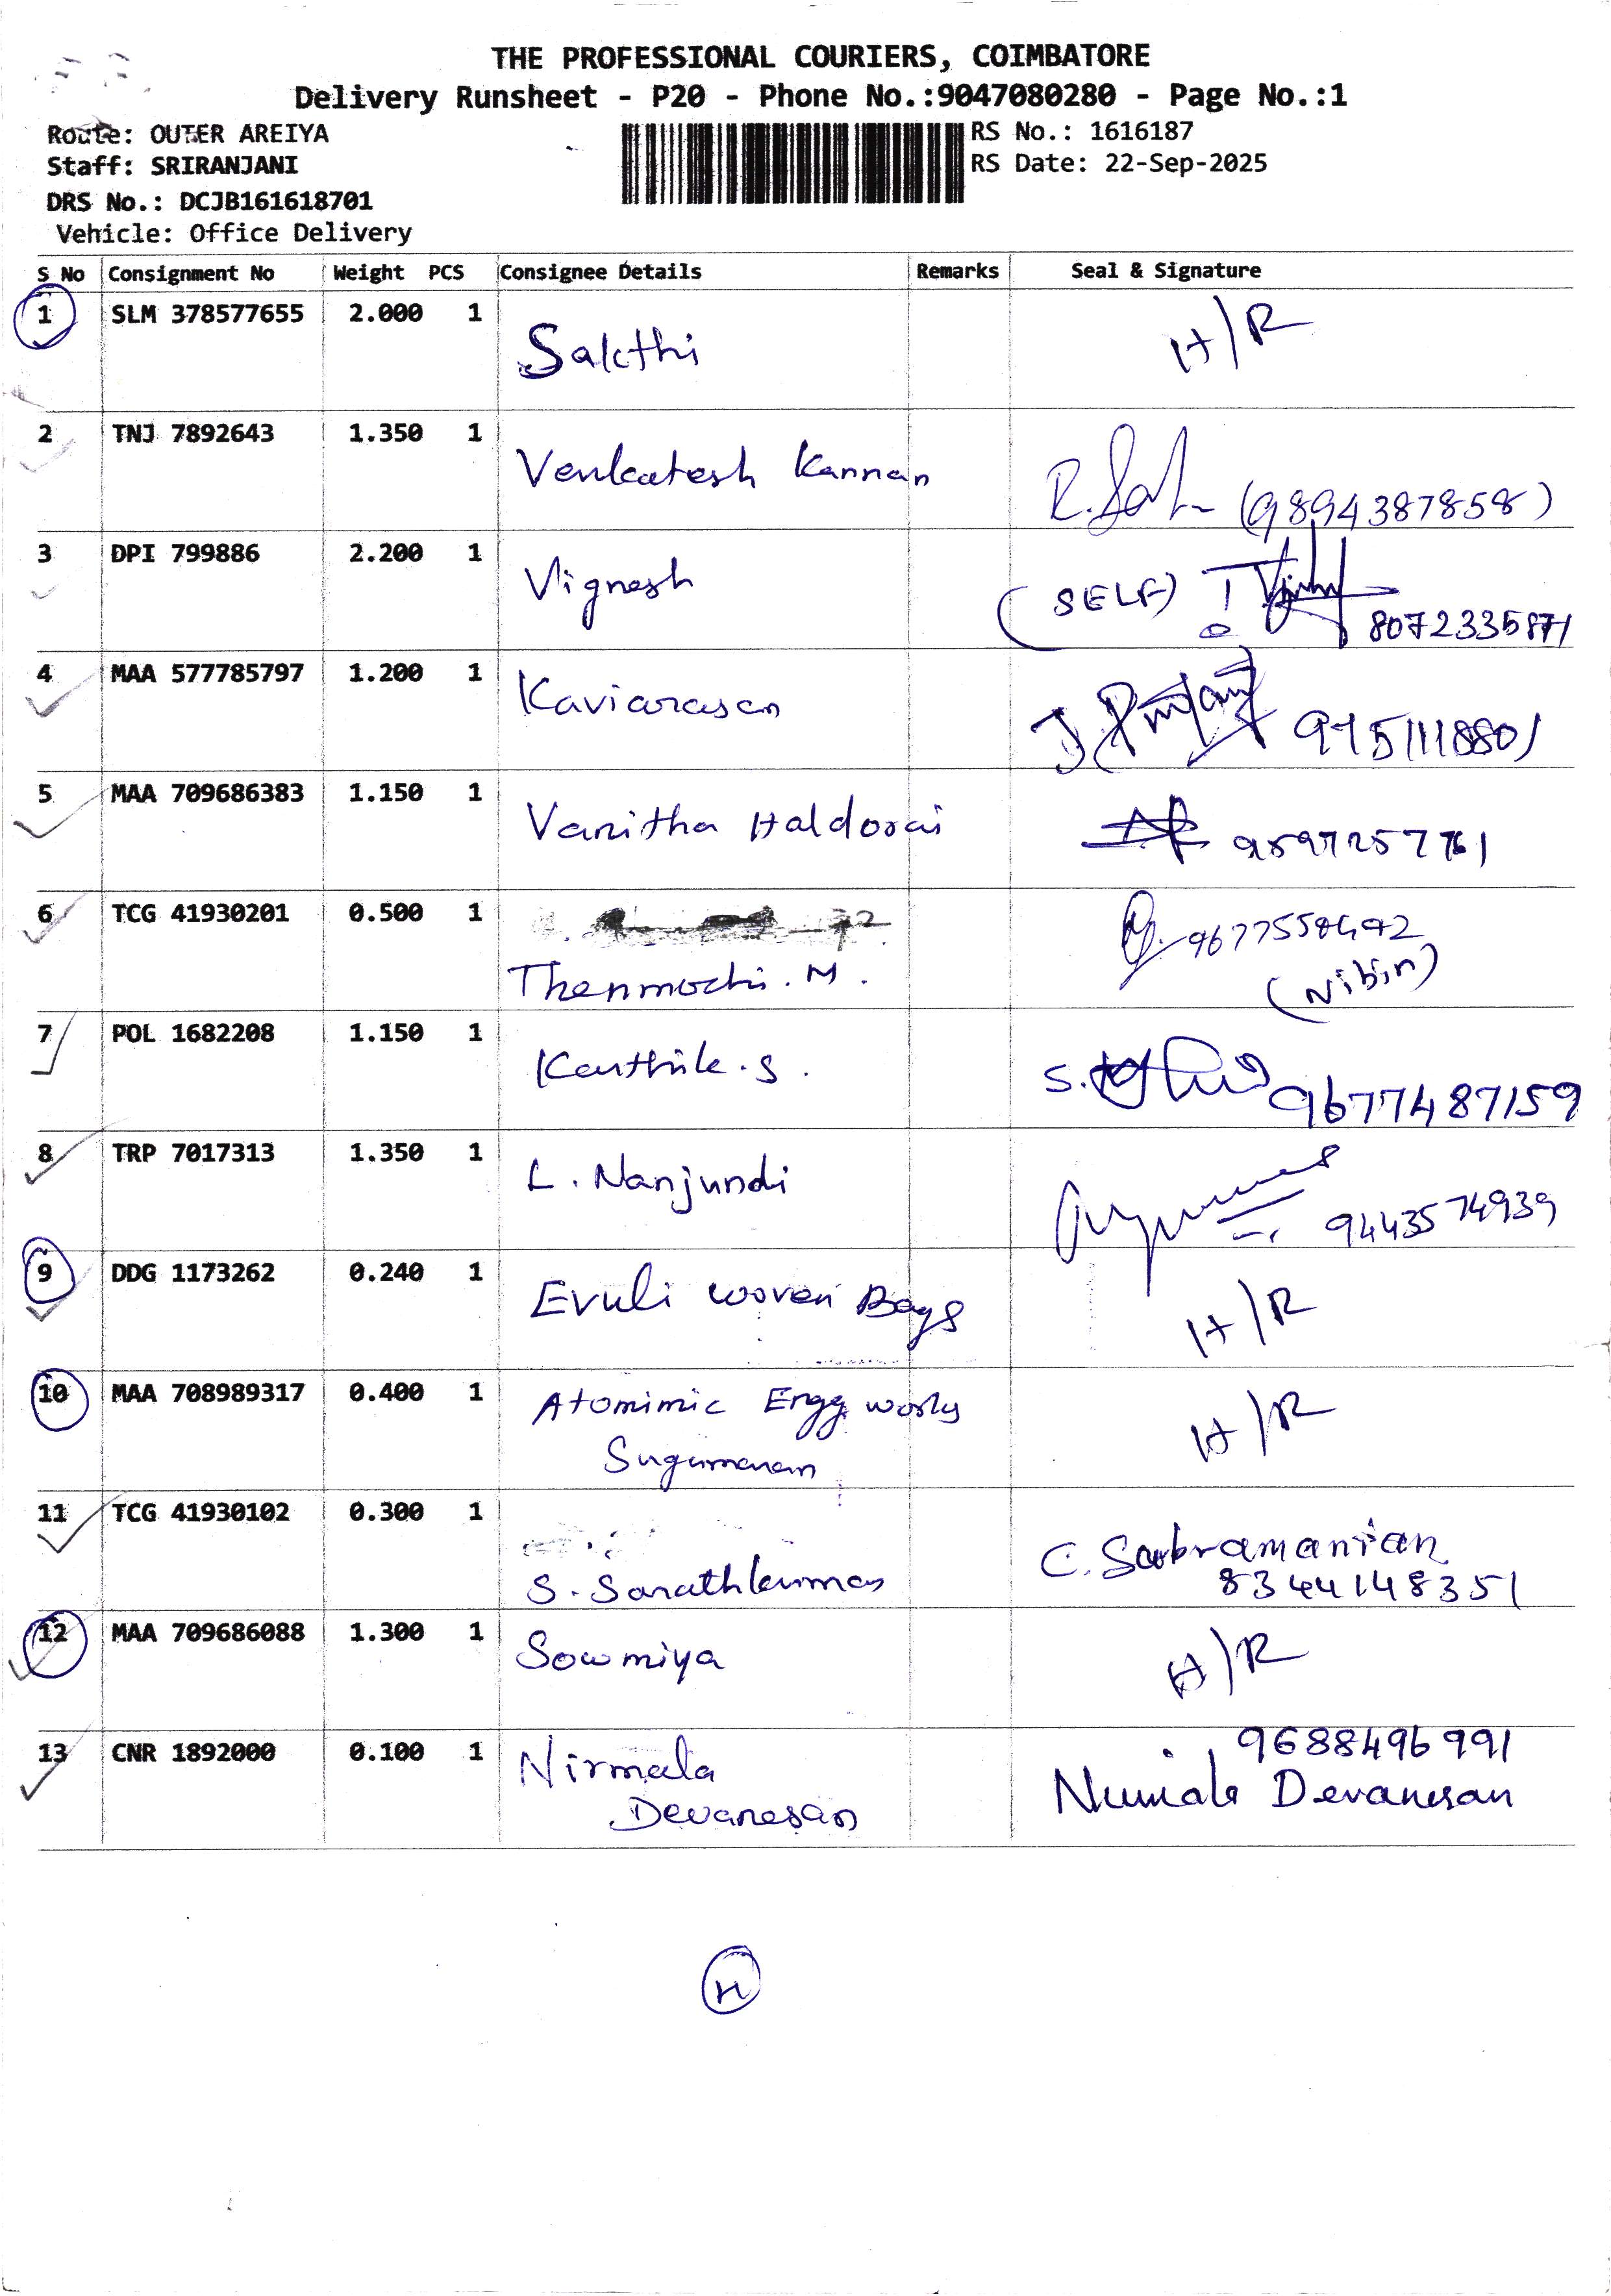 THE PROFESSIONAL COURIERS, COIMBATORE
Delivery Runsheet - P20 - Phone No.:9047080280 - Page No.:1
Route: OUTER AREIYA
RS No.: 1616187
Staff: SRIRANJANI
RS Date: 22-Sep-2025
DRS No.: DCJB161618701
Vehicle: Office Delivery
S No Consignment No Weight PCS Consignee Details Remarks Seal & Signature
1 SLM 378577655 2.000 1 Sakthi H/R
2 TNJ 7892643 1.350 1 Venkatesh Kannan (9894387858)
3 DPI 799886 2.200 1 Vignesh (SELF) 8072335871
4 MAA 577785797 1.200 1 Kaviarasan 9751118801
5 MAA 709686383 1.150 1 Vanitha Haldorai
6 TCG 41930201 0.500 1
Thenmozhi. M.
(Nibin)
7 POL 1682208 1.150 1 Karthik. S. 9677487159
8 TRP 7017313 1.350 1 L. Nanjundi 9443574939
9 DDG 1173262 0.240 1 Evuli woven Bags H/R
10 MAA 708989317 0.400 1 Atomimic Engg works H/R
Sugumaran
11 TCG 41930102 0.300 1
S. Sarathkumar C. Subramanian
8344148351
12 MAA 709686088 1.300 1 Sowmiya H/R
13 CNR 1892000 0.100 1 Nirmala 9688496991
Devanesan Nirmala Devanesan
H